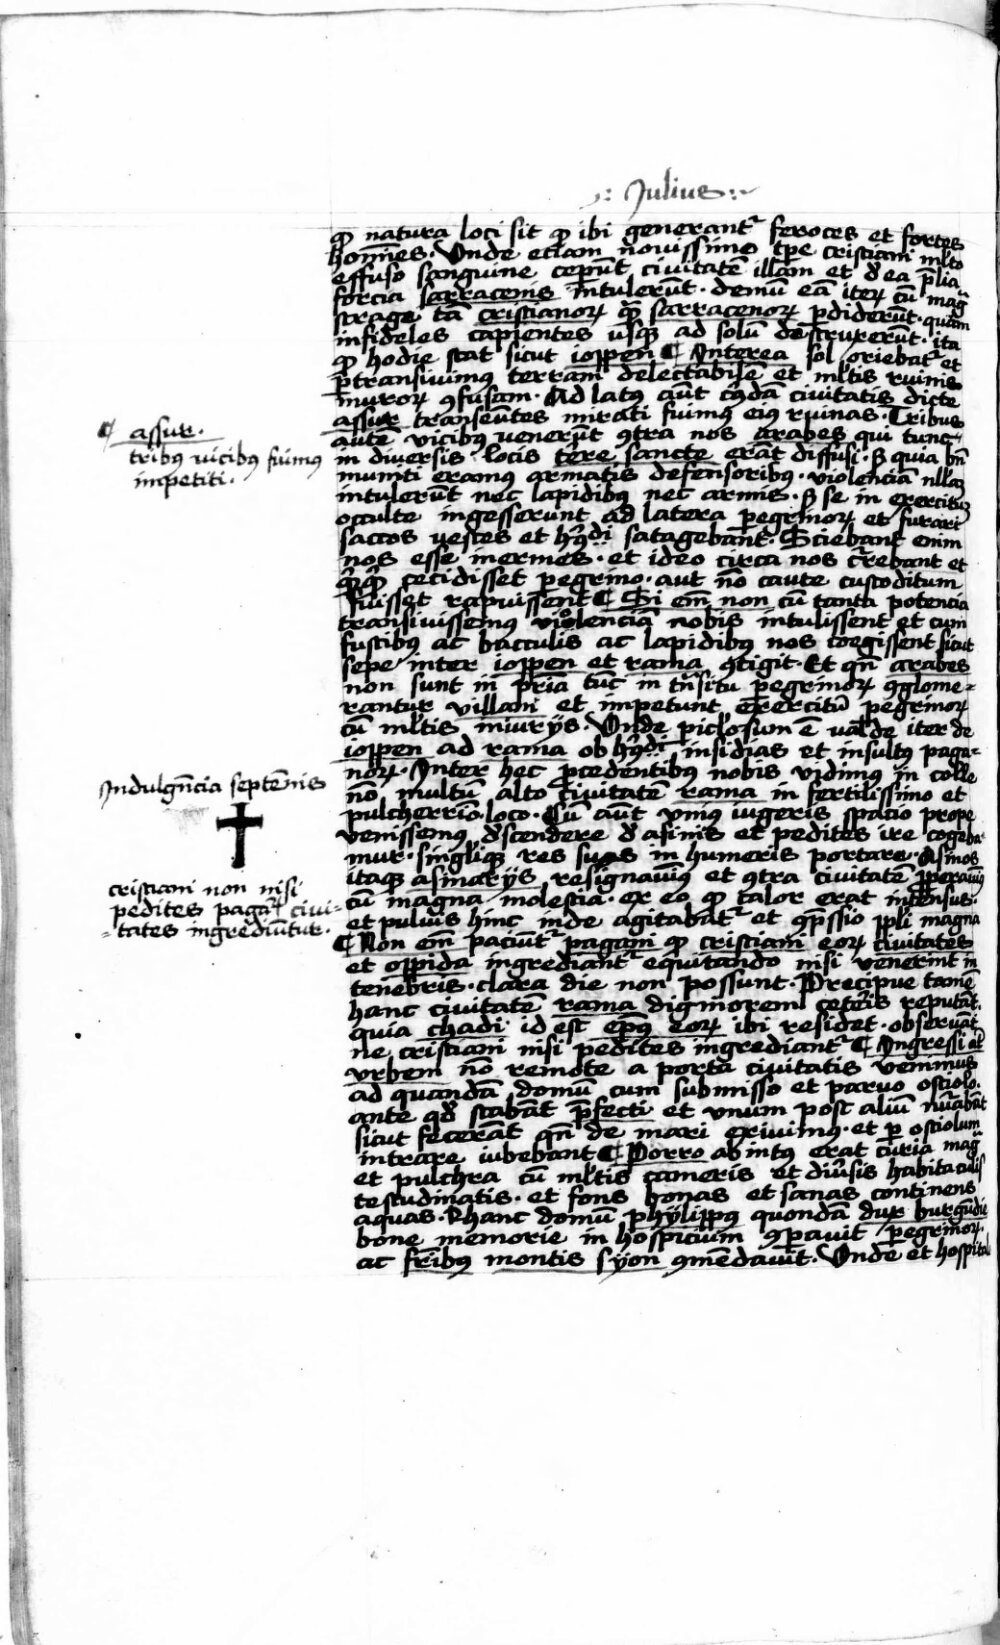 .: Julius :.
ꝙ natura loci sit ꝙ ibi generant᷑ feroces et fortes
homĩes. Unde etiam nouissimo tp̃e cristiani ml̃to
effuso sanguine ceperũt ciuitatẽ illam et d̃ ea p̃lia
forcia sarracenis intulerũt. demũ eã iteꝝ cũ mag̃
strage tã cristianoꝝ q̃ sarracenoꝝ ꝑdiderũt. quãm
infideles capientes usqꝫ ad solũ destruxerũt. ita
ꝙ hodie stat sicut ioppen ¶ Interea sol oriebat᷑ et
ꝑtransiuimꝰ terram delectabilẽ et ml̃tis ruinis
muroꝝ ꝯfusam. Ad latꝰ aũt cuiꝰdã ciuitatis dicte
assur transeũtes mirati fuimꝰ eiꝰ ruinas. Tribus
autẽ vicibꝰ venerũt ꝯtra nos arabes qui tunc
in diuersis locis tere sancte erãt diffusi. Sꝫ quia bñ
muniti eramꝰ armatis defensoribꝰ. violenciã nllãm
intulerũt nec lapidibꝰ nec armis. Sꝫ se in exercitũ
occulte ingesserunt ad latera peregrinoꝝ et furari
saccos vestes et hꝰꝰdi satagebant. Sciebant enim
nos esse inermes. et ideo circa nos currebant et
q̃q̃ cecidisset peg̃rino. aut nõ caute custoditum
fuisset rapuissent ¶ Si em̃ non cũ tanta potencia
transiuissemꝰ violenciã nobis intulissent et cum
fustibꝰ ac bacculis ac lapidibꝰ nos coegissent sicut
sepe inter ioppen et rama ꝯtigit. Et qñ arabes
non sunt in p̃ria tũc in trãsitu peg̃rinoꝝ ꝯglome-
rantur villani et impetunt exercitũ peg̃rinoꝝ
cũ ml̃tis iniurijs. Unde piclosum ẽ valde iter de
ioppen ad rama ob hꝰꝰdi insidias et insultꝰ paga-
noꝝ. Inter hec p̃cedentibꝰ nobis vidimꝰ in colle
nõ multũ alto ciuitatẽ rama in fertilissimo et
pulcherrio loco. Cũ aũt vniꝰ iugeris spacio prope
venissemꝰ d̃scendere d̃ asinis et pedites ire cogeba-
mur. singl̃iqꝫ res suas in humeris portare. Asinos
itaqꝫ asinarijs resignauimꝰ et ꝯtra ciuitatẽ ꝓperauimꝰ
cũ magna molestia. ex eo ꝙ calor erat intensus.
et puluis hinc inde agitabat᷑ et ꝯp̃ssio ppl̃i magna
¶ Non em̃ paciũt᷑ pagani ꝙ cristiani eoꝝ ciuitates
et oppida ingrediant᷑ equitando nisi venerint in
tenebris. clara die non possunt. Precipue tamẽ
hanc ciuitatẽ rama digniorem ceteris reputãt.
quia chadi id est ep̃ꝰ eoꝝ ibi residet. obseruãt
ne cristiani nisi pedites ingrediant᷑ ¶ Ingressi aũt
vrbem nõ remote a porta ciuitatis venimus
ad quandã domũ cum submisso et paruo ostiolo.
ante qd̃ stabãt p̃fecti et vnum post aliũ nũabãt
sicut fecerãt qñ de mari exiuimꝰ. et ꝑ ostiolum
intrare iubebant ¶ Porro ab intꝰ erat curia mag̃
et pulchra cũ ml̃tis cameris et diũsis habitaculis
testudinatis. et fons bonas et sanas continens
aquas. Et hanc domũ phÿlippꝰ quondã dux burgũdie
bone memorie in hospicium ꝯparauit peg̃rinoꝝ.
ac fribꝰ montis sÿon ꝯmẽdauit. Unde et hospital
¶ assur.
tribꝰ vicibꝰ fuimꝰ
impetiti.
Indulgñcia septẽnis
cristiani non nisi
pedites pagaꝝ ciui-
-tates ingrediũtur.